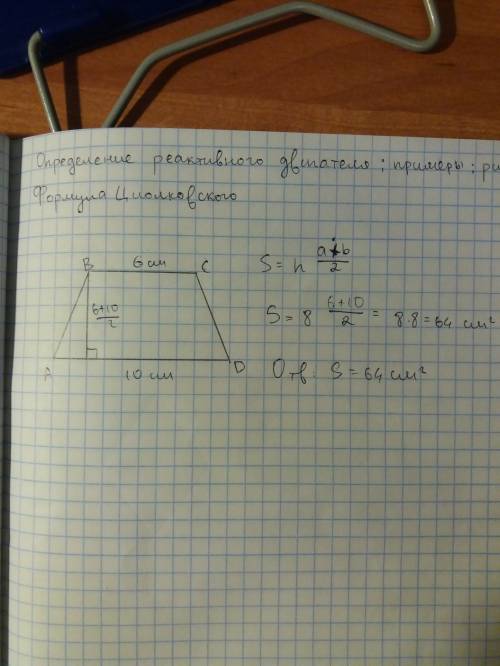 Определение реактивного двигателя; примеры; ри
Формула Циолковского
B 6 см C
S = h a+b/2
6+10/2
S = 8 6+10/2 = 8·8 = 64 см²
A 10 см D
Отв: S = 64 см²